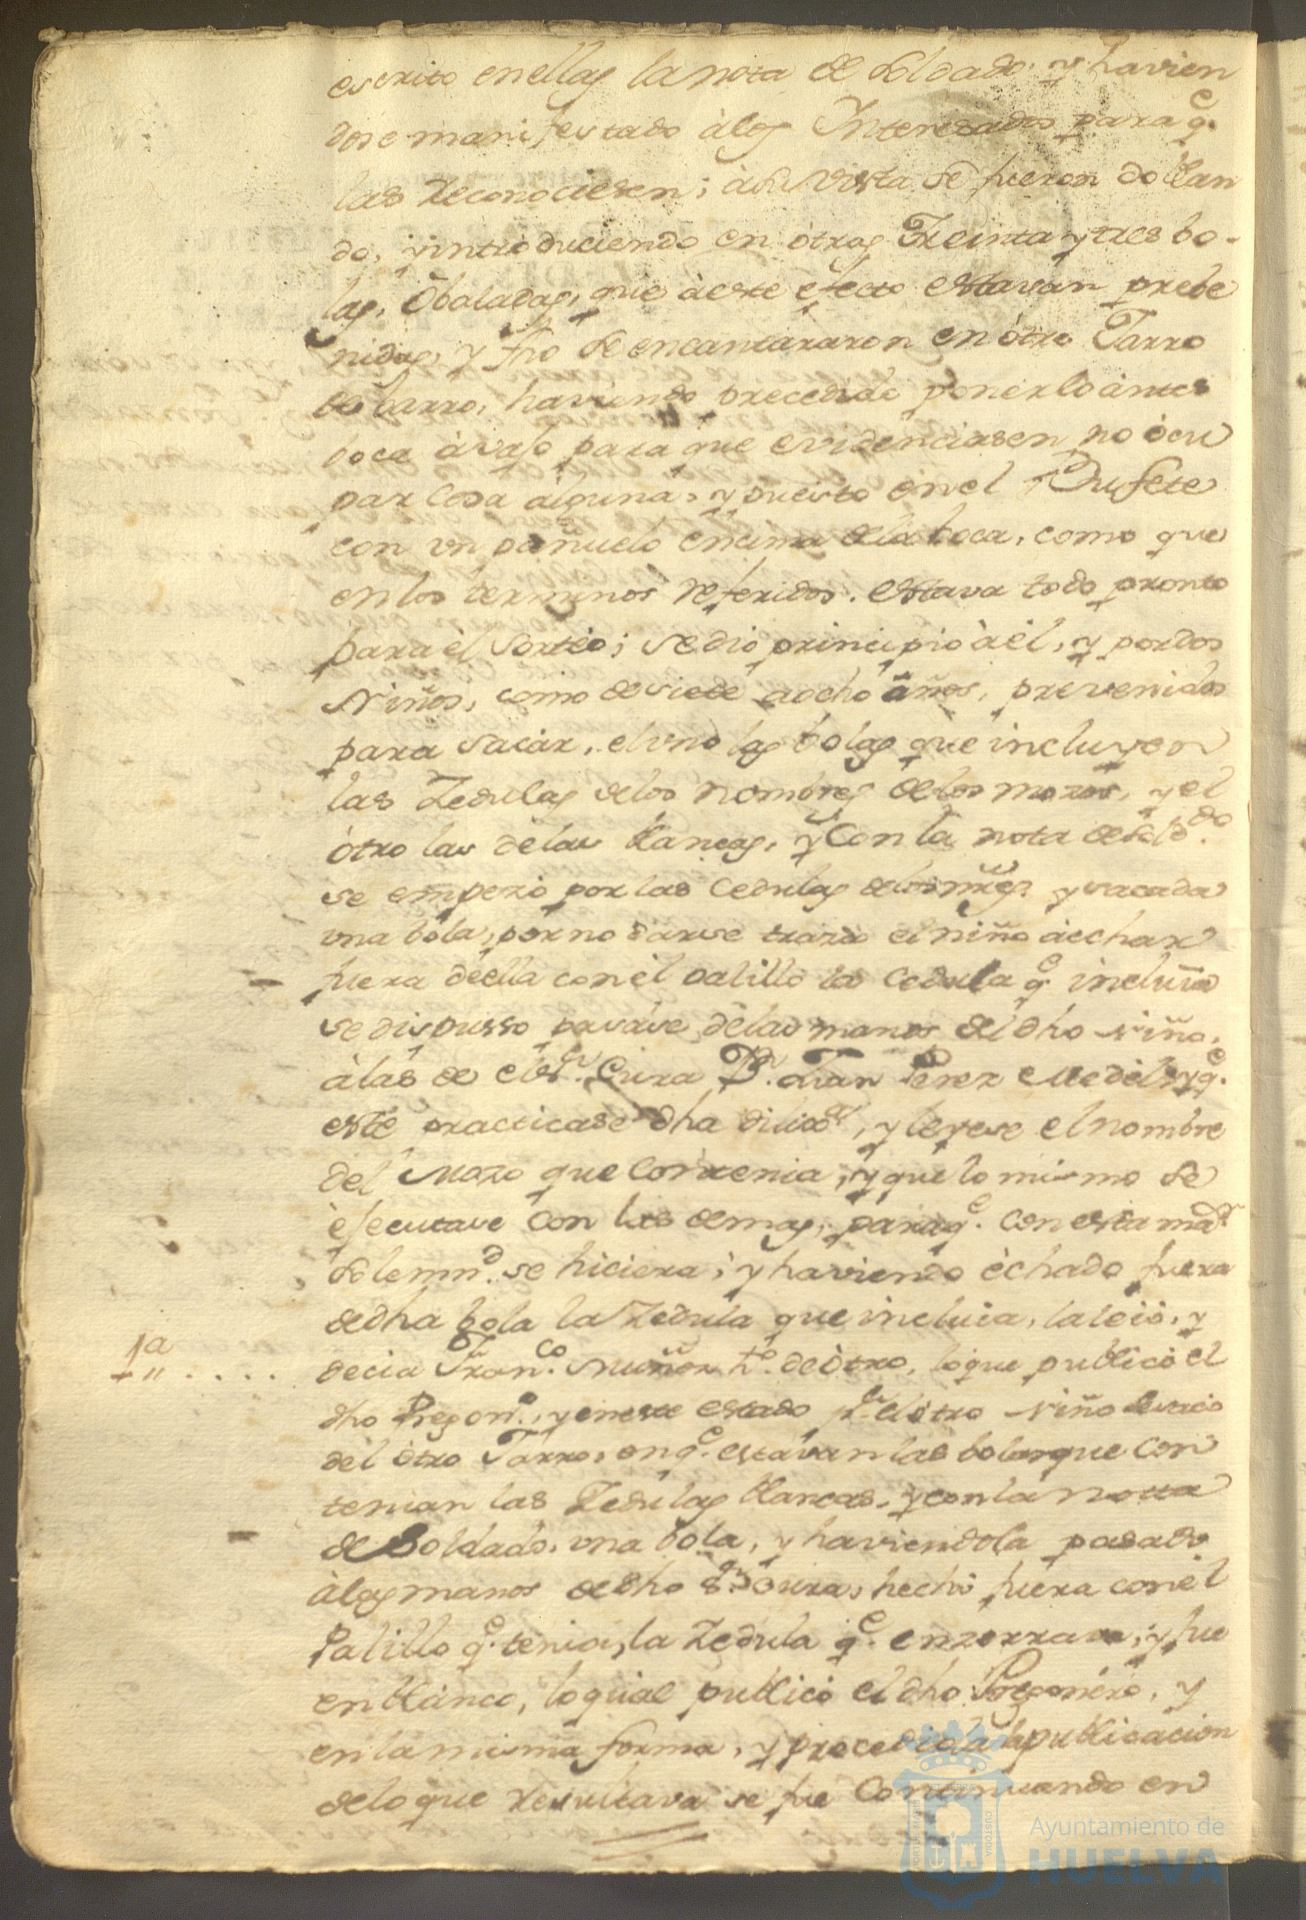 escrito en ellas la nota de soldado. y havien
dose manifestado à los Interesados para q.e
las reconociesen; à su vista se fueron doblan
do, y introduciendo en otras Treinta y tres bo-
las, Obaladas, que à este efecto estavan prebe
nidas, y se encantararon en ótro Tarro
de barro, haviendo precedido ponerlo àntes
boca àvajo para que evidenciasen no òcu
par cosa alguna, y puesto en el Bufete
con un pañuelo encima de la boca, como que
en los terminos referidos. estava todo pronto
para èl Sorteo; se dio principio à èl, y por dos
Niños, como de siete a ocho años, prevenidos
para sacar, el uno las bolas que incluyen
las Zedulas de los nombres de los mozos, y el
òtro las de las blancas, y Con la nota de sold.do
se empezó por las Cedulas de los nres. y sacada
una bola, por no darse traza el niño à echar
fuera de ella con èl palillo la Cedula q.e incluia
se dispusso pasase de las manos del dho niño,
à las de el S.r Cura B.r Juan Perez y q.e
este practicase dha dilix.a, y leyese el nombre
del Mozo que Contenia, y que lo mismo se
èjecutase Con las demas, para q.e Con esta ma.r
solemn.d se hiciera; y haviendo èchado fuera
de dha bola la Zedula que incluia, la leió, y
1.a ....
decia Fran.co Muñoz h.o de òtro, lo que publicó el
dho Pregon.o, y en este estado p.r el òtro niño se sacó
del òtro Tarro, en q.e estavan las bolas que Con
tenian las Zedulas blancas, y con la notta
de Soldado, una bola, y haviendola pasado
à las manos de dho S.r Cura, hechó fuera con èl
Palillo q.e tenia, la Zedula q.e enzerrava, y fue
en blanco, lo qual publicó el dho Pregonero, y
en la misma forma, y precedida la publicacion
de lo que resultava se fue Continuando en
Ayuntamiento de
HUELVA